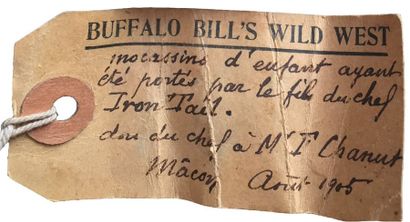 BUFFALO BILL'S WILD WEST
mocassins d'enfant ayant
été portés par le fils du chef
Iron Tail.
don du chef à Mr F Chanut
Mâcon Août 1905